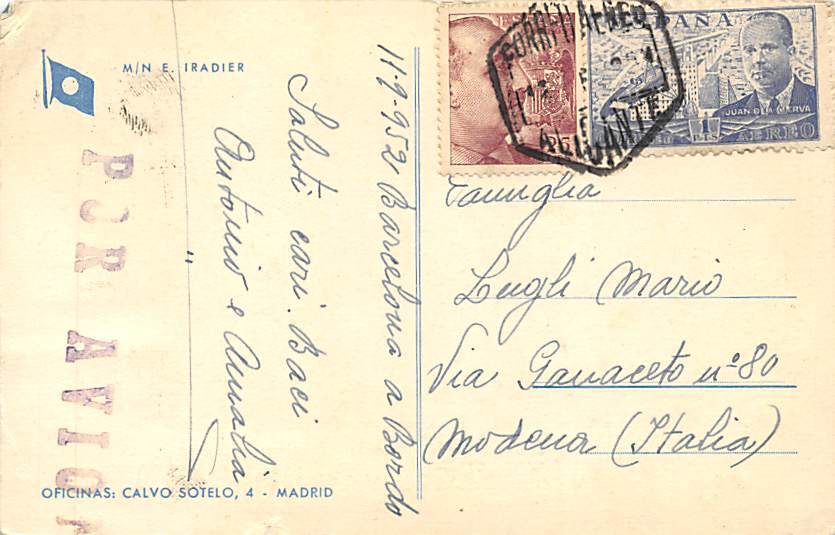 M/N E. IRADIER
11-9-952 Barcelona a Bordo
Saluti cari. Baci
Antonio e Amalia
POR AVION
OFICINAS: CALVO SOTELO, 4 - MADRID
ESPAÑA
CORREO AEREO
ALICANTE
ESPAÑA
JUAN DE LA CIERVA
1 PTS
AEREO
Famiglia
Lugli Mario
Via Ganaceto nº 80
Modena (Italia)